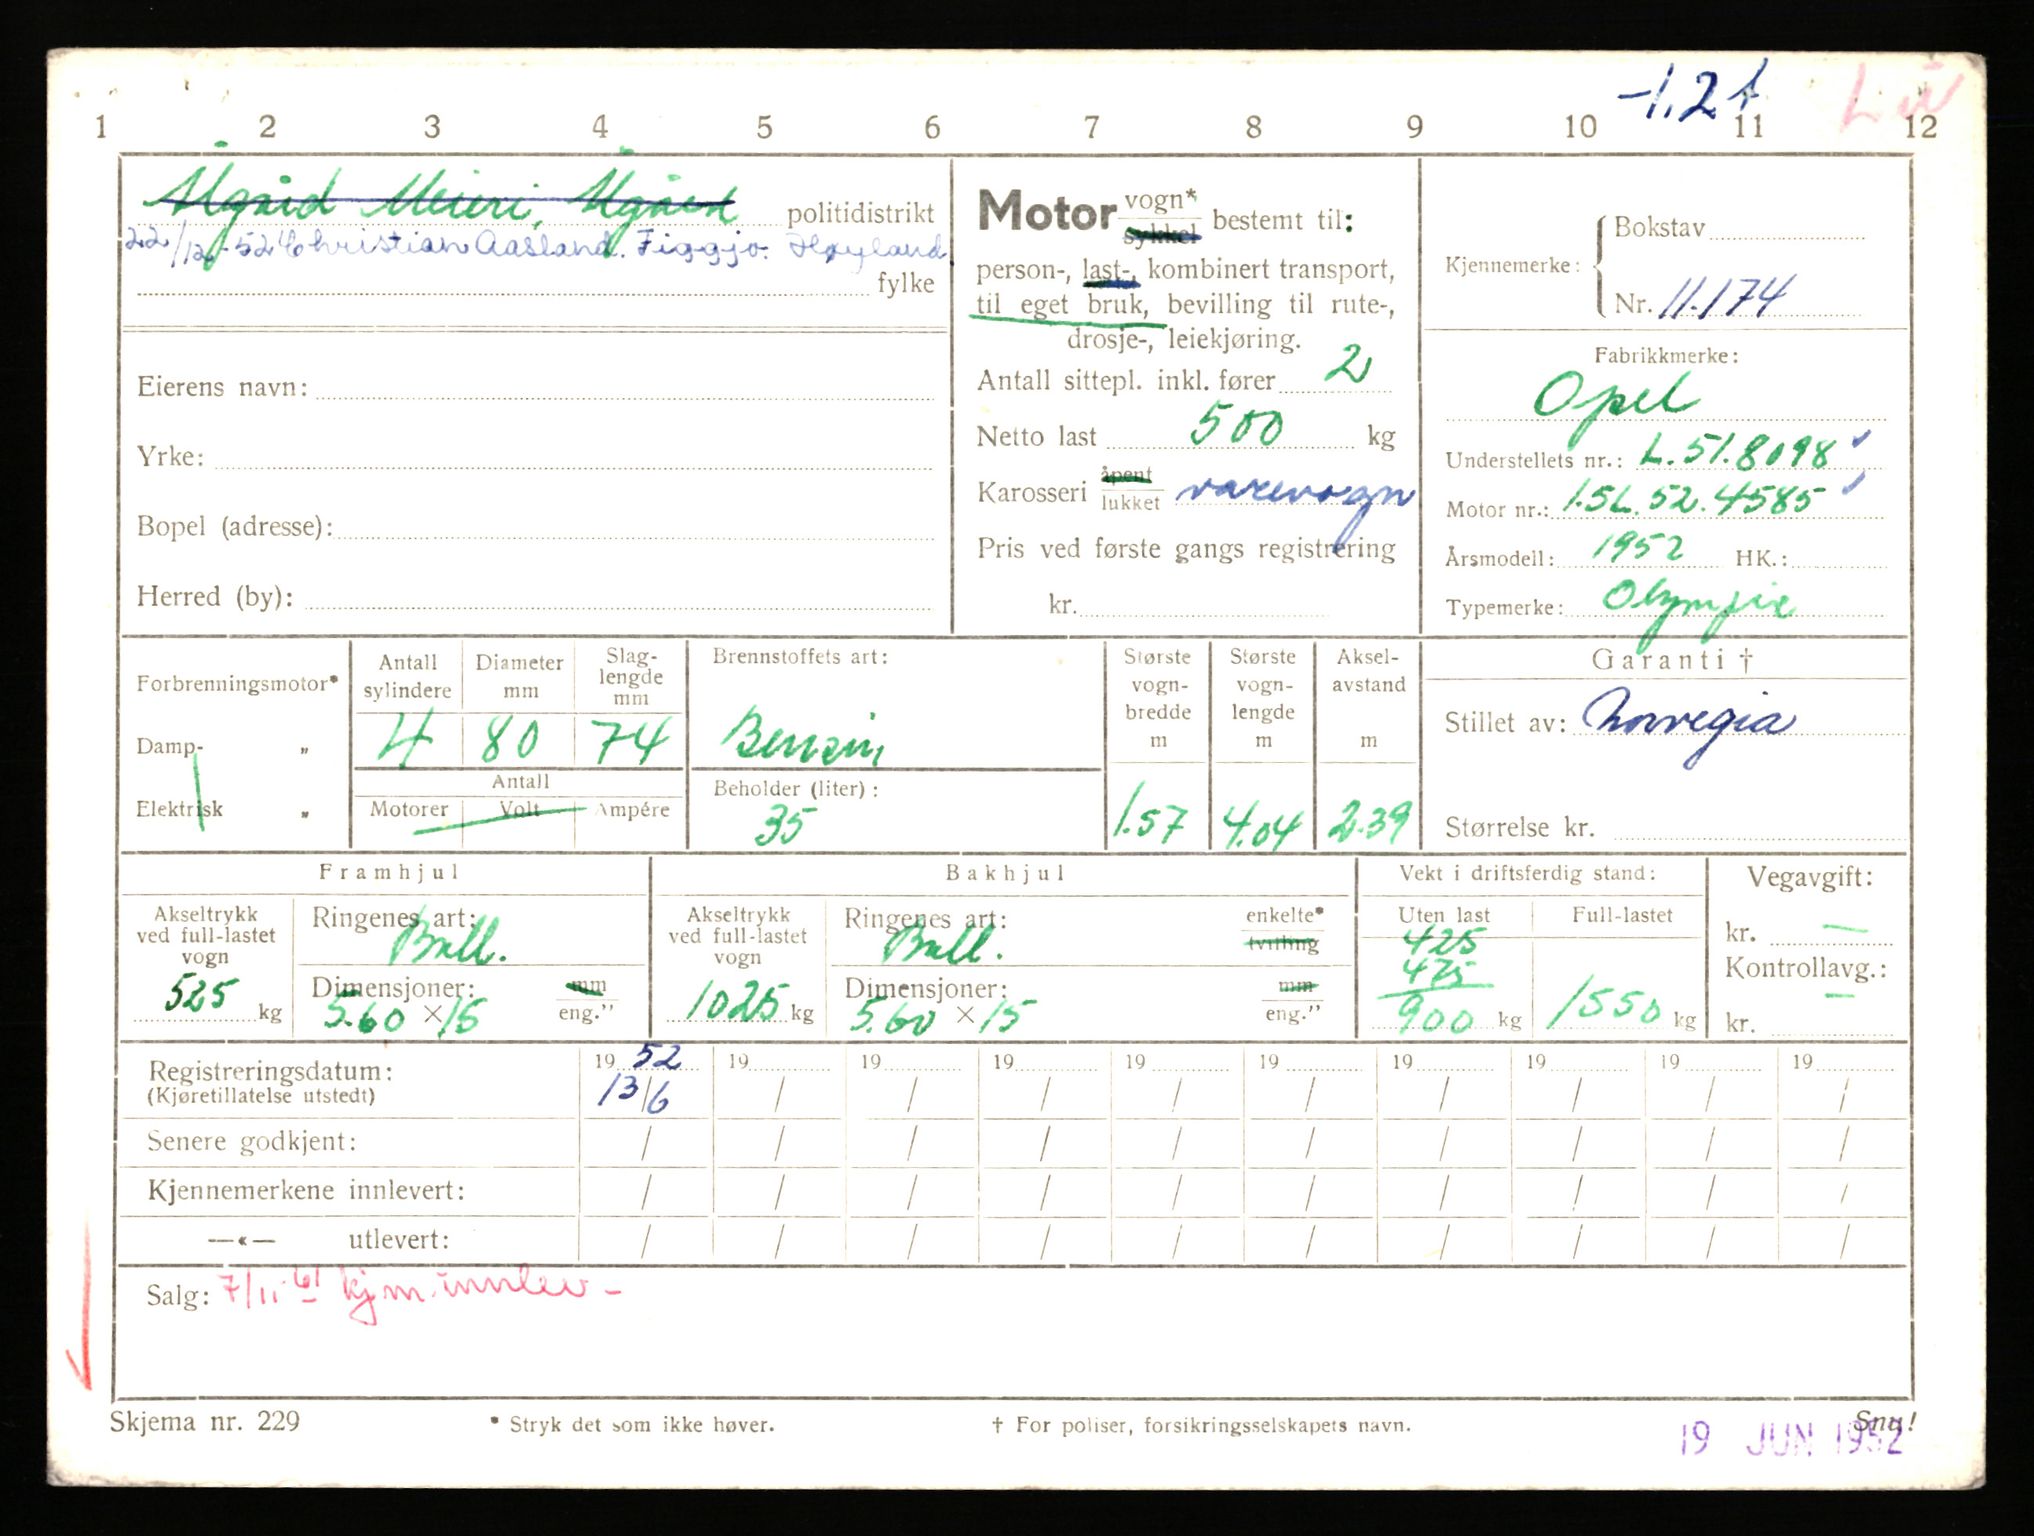 -1.2 t
1 2 3 4 5 6 7 8 9 10 11 12
Ålgård Meieri, Ålgård politidistrikt
22/12-52 Christian Aasland. Figgjo. Høyland
fylke
Eierens navn:
Yrke:
Bopel (adresse):
Herred (by):
Motor vogn* sykkel bestemt til:
person-, last-, kombinert transport,
til eget bruk, bevilling til rute-,
drosje-, leiekjøring.
Antall sittepl. inkl. fører 2
Netto last 500 kg
Karosseri åpent lukket varevogn
Pris ved første gangs registrering
kr.
Kjennemerke:
Bokstav
Nr. 11.174
Fabrikkmerke:
Opel
Understellets nr.: L.51.8098
Motor nr.: 1.5L.52.4585
Årsmodell: 1952 HK.:
Typemerke: Olympia
Forbrenningsmotor*
Damp- „
Elektrisk „
Antall sylindere
4
Diameter mm
80
Slag-lengde mm
74
Antall
Motorer Volt Ampére
Brennstoffets art:
Bensin
Beholder (liter):
35
Største vogn-bredde m
1.57
Største vogn-lengde m
4.04
Aksel-avstand m
2.39
Garanti †
Stillet av: Norvegia
Størrelse kr.
Framhjul
Akseltrykk ved full-lastet vogn
525 kg
Ringenes art:
Ball.
Dimensjoner: mm
5.60 × 15 eng.”
Bakhjul
Akseltrykk ved full-lastet vogn
1025 kg
Ringenes art: enkelte*
Ball. tvilling
Dimensjoner: mm
5.60 × 15 eng.”
Vekt i driftsferdig stand:
Uten last
425
475
900 kg
Full-lastet
1550 kg
Vegavgift:
kr. —
Kontrollavg.:
kr. —
Registreringsdatum: 19 52 19 19 19 19 19 19 19 19 19
(Kjøretillatelse utstedt) 13/6 / / / / / / / / /
Senere godkjent: / / / / / / / / / /
Kjennemerkene innlevert: / / / / / / / / / /
—«— utlevert: / / / / / / / / / /
Salg: 7/11-61 kjm. innlev -
Skjema nr. 229
* Stryk det som ikke høver.
† For poliser, forsikringsselskapets navn.
Snu!
19 JUN 1952